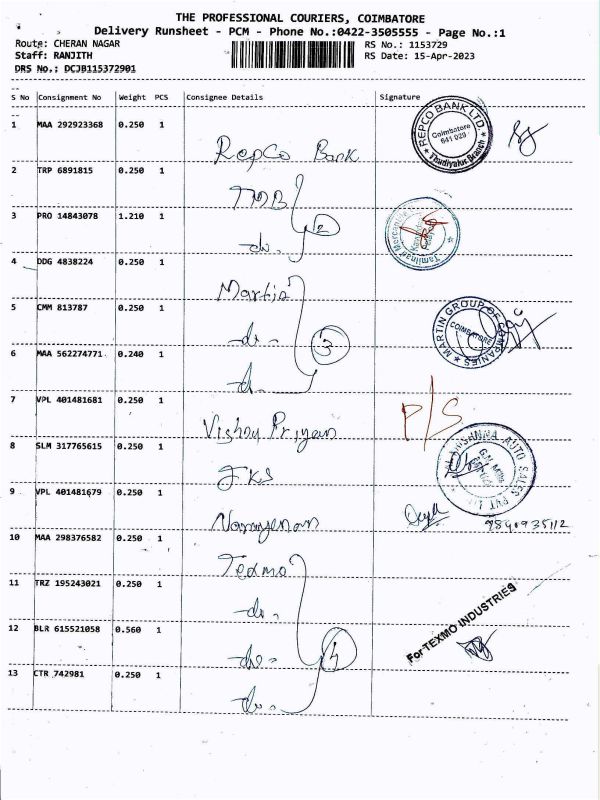 THE PROFESSIONAL COURIERS, COIMBATORE
Delivery Runsheet - PCM - Phone No.:0422-3505555 - Page No.:1
Route: CHERAN NAGAR RS No.: 1153729
Staff: RANJITH RS Date: 15-Apr-2023
DRS No.: DCJB115372901
S No Consignment No Weight PCS Consignee Details Signature
1 MAA 292923368 0.250 1
Repco Bank
REPCO BANK LTD.
Coimbatore
641 029
* Thudiyalur Branch *
2 TRP 6891815 0.250 1
TMB
3 PRO 14843078 1.210 1
-do- 2
Tamilnad Mercantile
4 DDG 4838224 0.250 1
Martin
5 CMM 813787 0.250 1
-do- 3
MARTIN GROUP OF COMPANIES
COIMBATORE
6 MAA 562274771 0.240 1
-do-
7 VPL 401481681 0.250 1
Vishnu Priyan
P/S
8 SLM 317765615 0.250 1
JKS
AUTO SALES PVT. LTD
G.N. Mills
9 VPL 401481679 0.250 1
Narayanan
9840935112
10 MAA 298376582 0.250 1
Texmo
11 TRZ 195243021 0.250 1
-do-
For TEXMO INDUSTRIES
12 BLR 615521058 0.560 1
-do- 4
13 CTR 742981 0.250 1
-do-